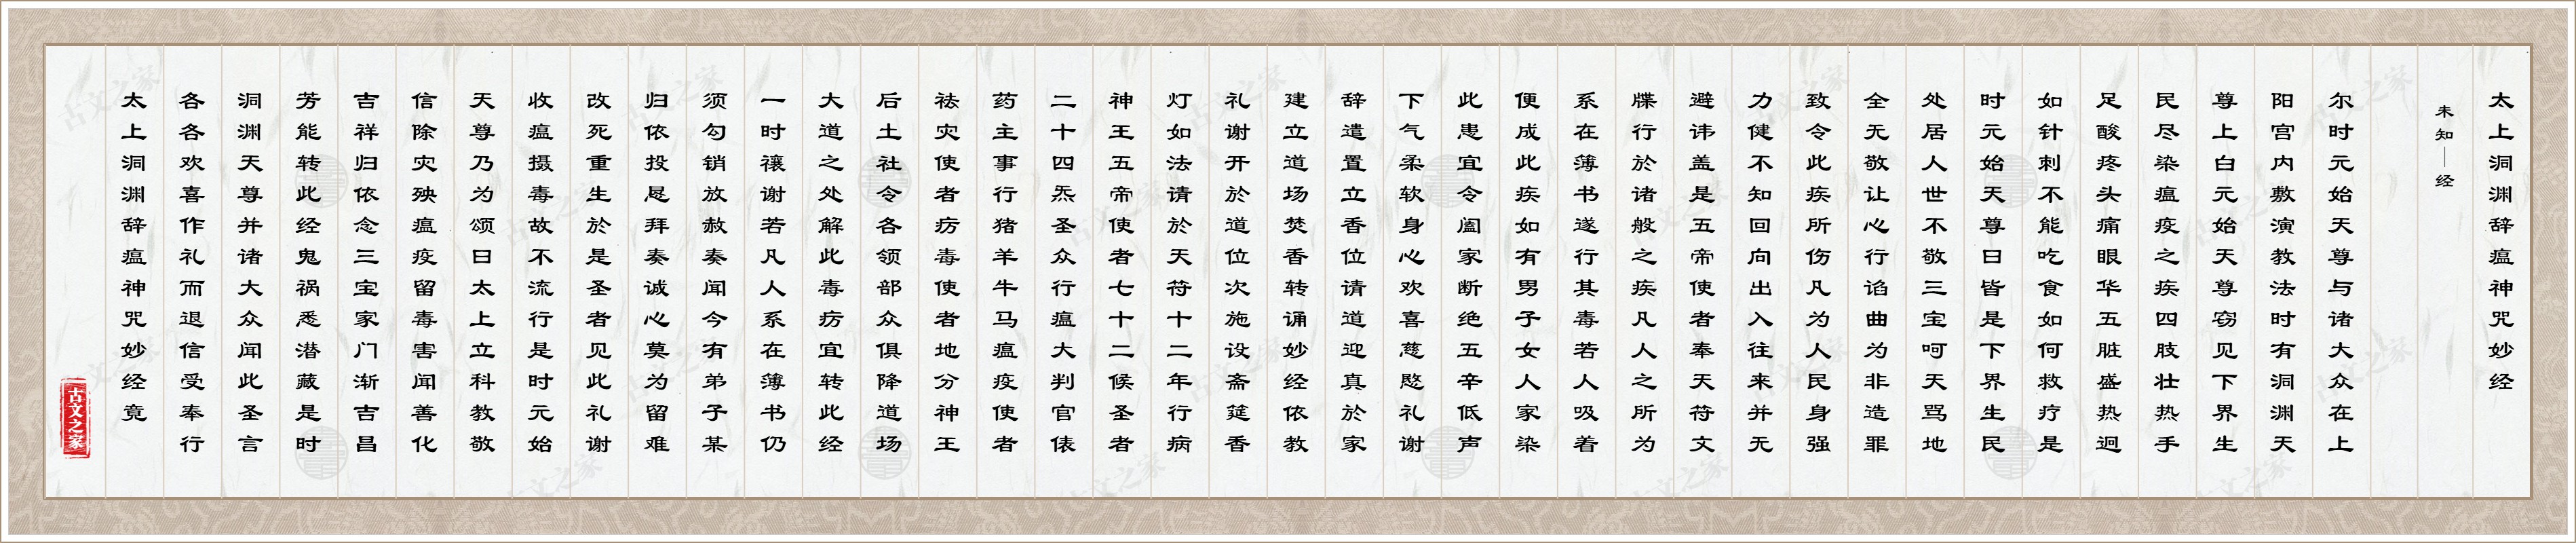 太上洞渊辞瘟神咒妙经
未知—经
尔时元始天尊与诸大众在上
阳宫内敷演教法时有洞渊天
尊上白元始天尊窃见下界生
民尽染瘟疫之疾四肢壮热手
足酸疼头痛眼华五脏盛热迥
如针刺不能吃食如何救疗是
时元始天尊曰皆是下界生民
处居人世不敬三宝呵天骂地
全无敬让心行谄曲为非造罪
致令此疾所伤凡为人民身强
力健不知回向出入往来并无
避讳盖是五帝使者奉天符文
牒行於诸般之疾凡人之所为
系在薄书遂行其毒若人吸着
便成此疾如有男子女人家染
此患宜令阖家断绝五辛低声
下气柔软身心欢喜慈愍礼谢
辞遣置立香位请道迎真於家
建立道场焚香转诵妙经依教
礼谢开於道位次施设斋筵香
灯如法请於天符十二年行病
神王五帝使者七十二候圣者
二十四炁圣众行瘟大判官俵
药主事行猪羊牛马瘟疫使者
祛灾使者疠毒使者地分神王
后土社令各领部众俱降道场
大道之处解此毒疠宜转此经
一时禳谢若凡人系在薄书仍
须勾销放赦奏闻今有弟子某
归依投恳拜奏诚心莫为留难
改死重生於是圣者见此礼谢
收瘟摄毒故不流行是时元始
天尊乃为颂曰太上立科教敬
信除灾殃瘟疫留毒害闻善化
吉祥归依念三宝家门渐吉昌
芳能转此经鬼祸悉潜藏是时
洞渊天尊并诸大众闻此圣言
各各欢喜作礼而退信受奉行
太上洞渊辞瘟神咒妙经竟
古文之家